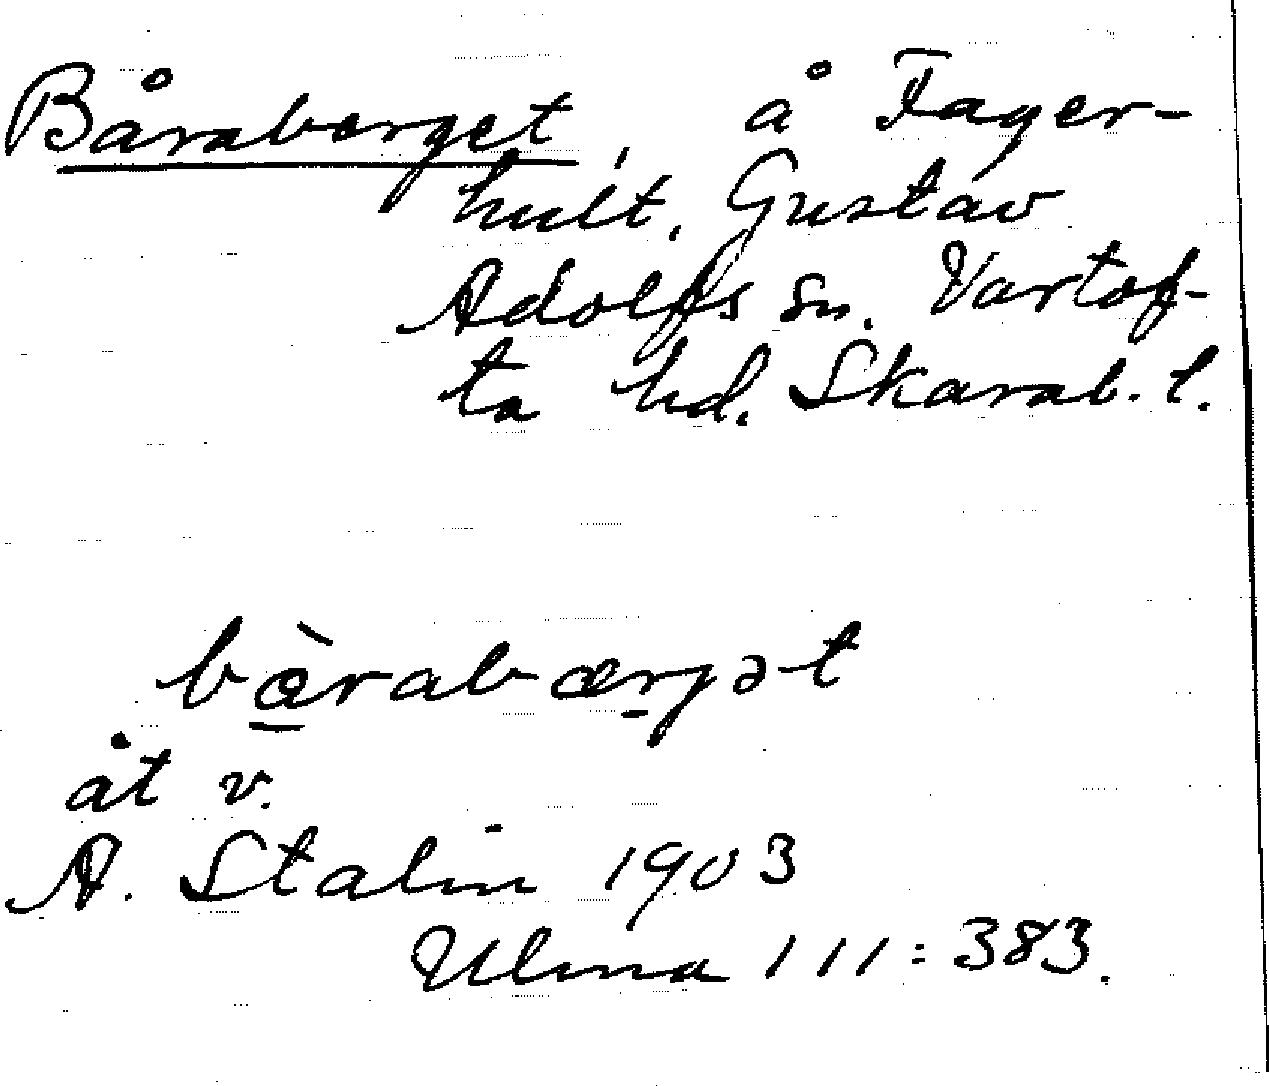 Båraberget, å Fager-
hult, Gustav
Adolfs sn. Vartof-
ta hd. Skarab. l.
bœ̀rabærjət
åt v.
A. Stalin 1903
Ulma 111:383.